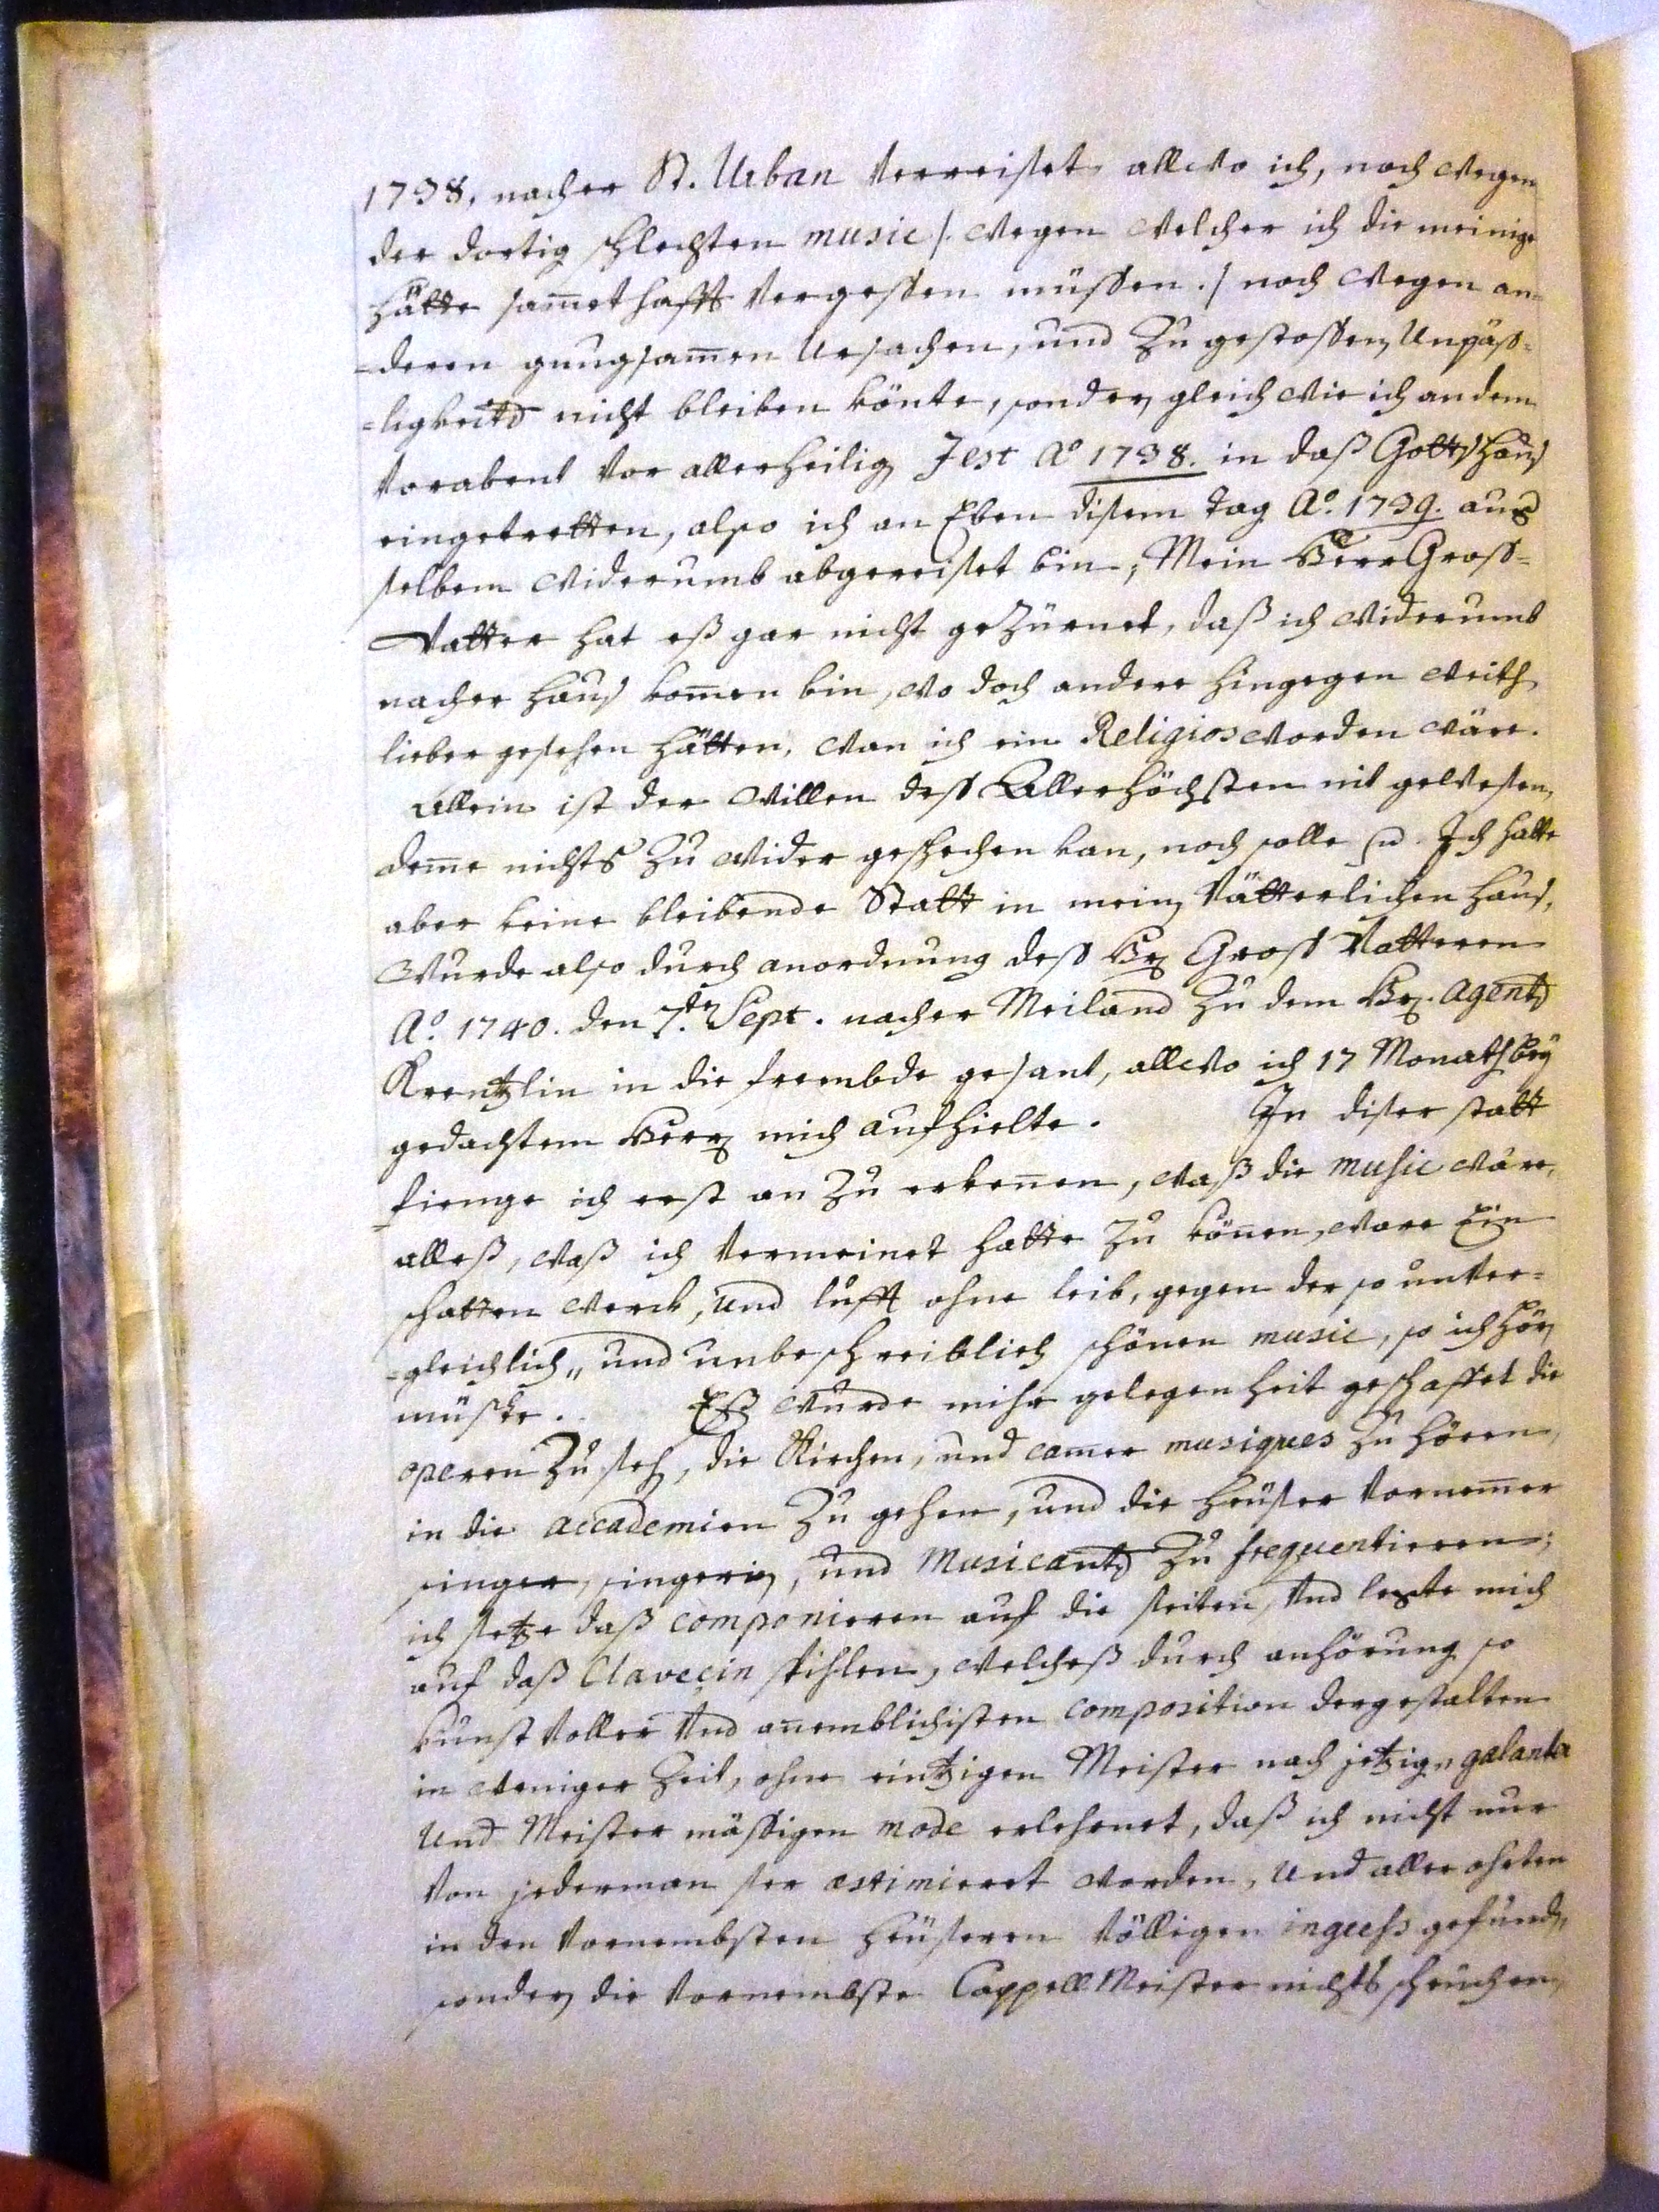 1738, nacher St. Urban verreiset, allwo ich, noch wegen
der dortig schlechten music /. wegen welcher ich die meinige
hätte samethafft vergessen müssen ./ noch wegen an=
=deren gnugsamen ursachen, und zu gestossen unpäss=
=ligkeite nicht bleiben könte, sonder gleich wie ich an dem
vorabent vor allerheilig Fest Aº 1738. in daß Gottshaus
eingetretten, also ich an Eben disem tag Aº. 1739. aus
selbem widerumb abgereiset bin; Mein Herr Gross=
Vatter hat eß gar nicht gezürnet, daß ich widerumb
nacher haus komen bin, wo doch andere hingegen weith
lieber gesehen hätten, wan ich ein Religios worden wäre.
Allein ist der willen dess Allerhöchsten nit gewesen,
deme nichts zu wider geschechen kan, noch solle. Ich hatte
aber keine bleibende Statt in mein vätterlichen haus,
wurde also durch anordnung dess Hr Gross Vatteren
Aº. 1740. den 7.ten Sept. nacher Meiland zu dem Hr. Agente
Krentzlin in die frembde gesant, allwo ich 17 Monath bey
gedachtem Herr mich aufhielte. In diser statt
fienge ich erst an zu erkenen, waß die music wäre,
alleß, waß ich vermeinet hatte zu könen, ware Ein
schatten werck, und lufft ohne leib, gegen der so unver=
=gleichlich,, und unbeschreiblich schönen music, so ich hör
müste. Eß wurde mihr gelegenheit geschaffet die
operen zu seh, die Kirchen, und camer musiques zu hören,
in die accademien zu gehen, und die heüser vornemer
singer, singerin, und Musicante zu frequentieren;
ich setze daß componieren auf die seiten, und legte mich
auf daß Claveçin spihlen, welcheß durch anhörung so
kunst voller und anemblichisten composition dergestalten
in weniger zeit, ohne eintzigen Meister nach jetzig,, galanter
und Meister mässigen mode erlehrnet, daß ich nicht nur
von jederman ser æstimieret worden, und aller ohrten
in den vornembsten heüseren völligen ingress gefund,,
sonder die vornembste Cappell Meister nichts scheüchen,